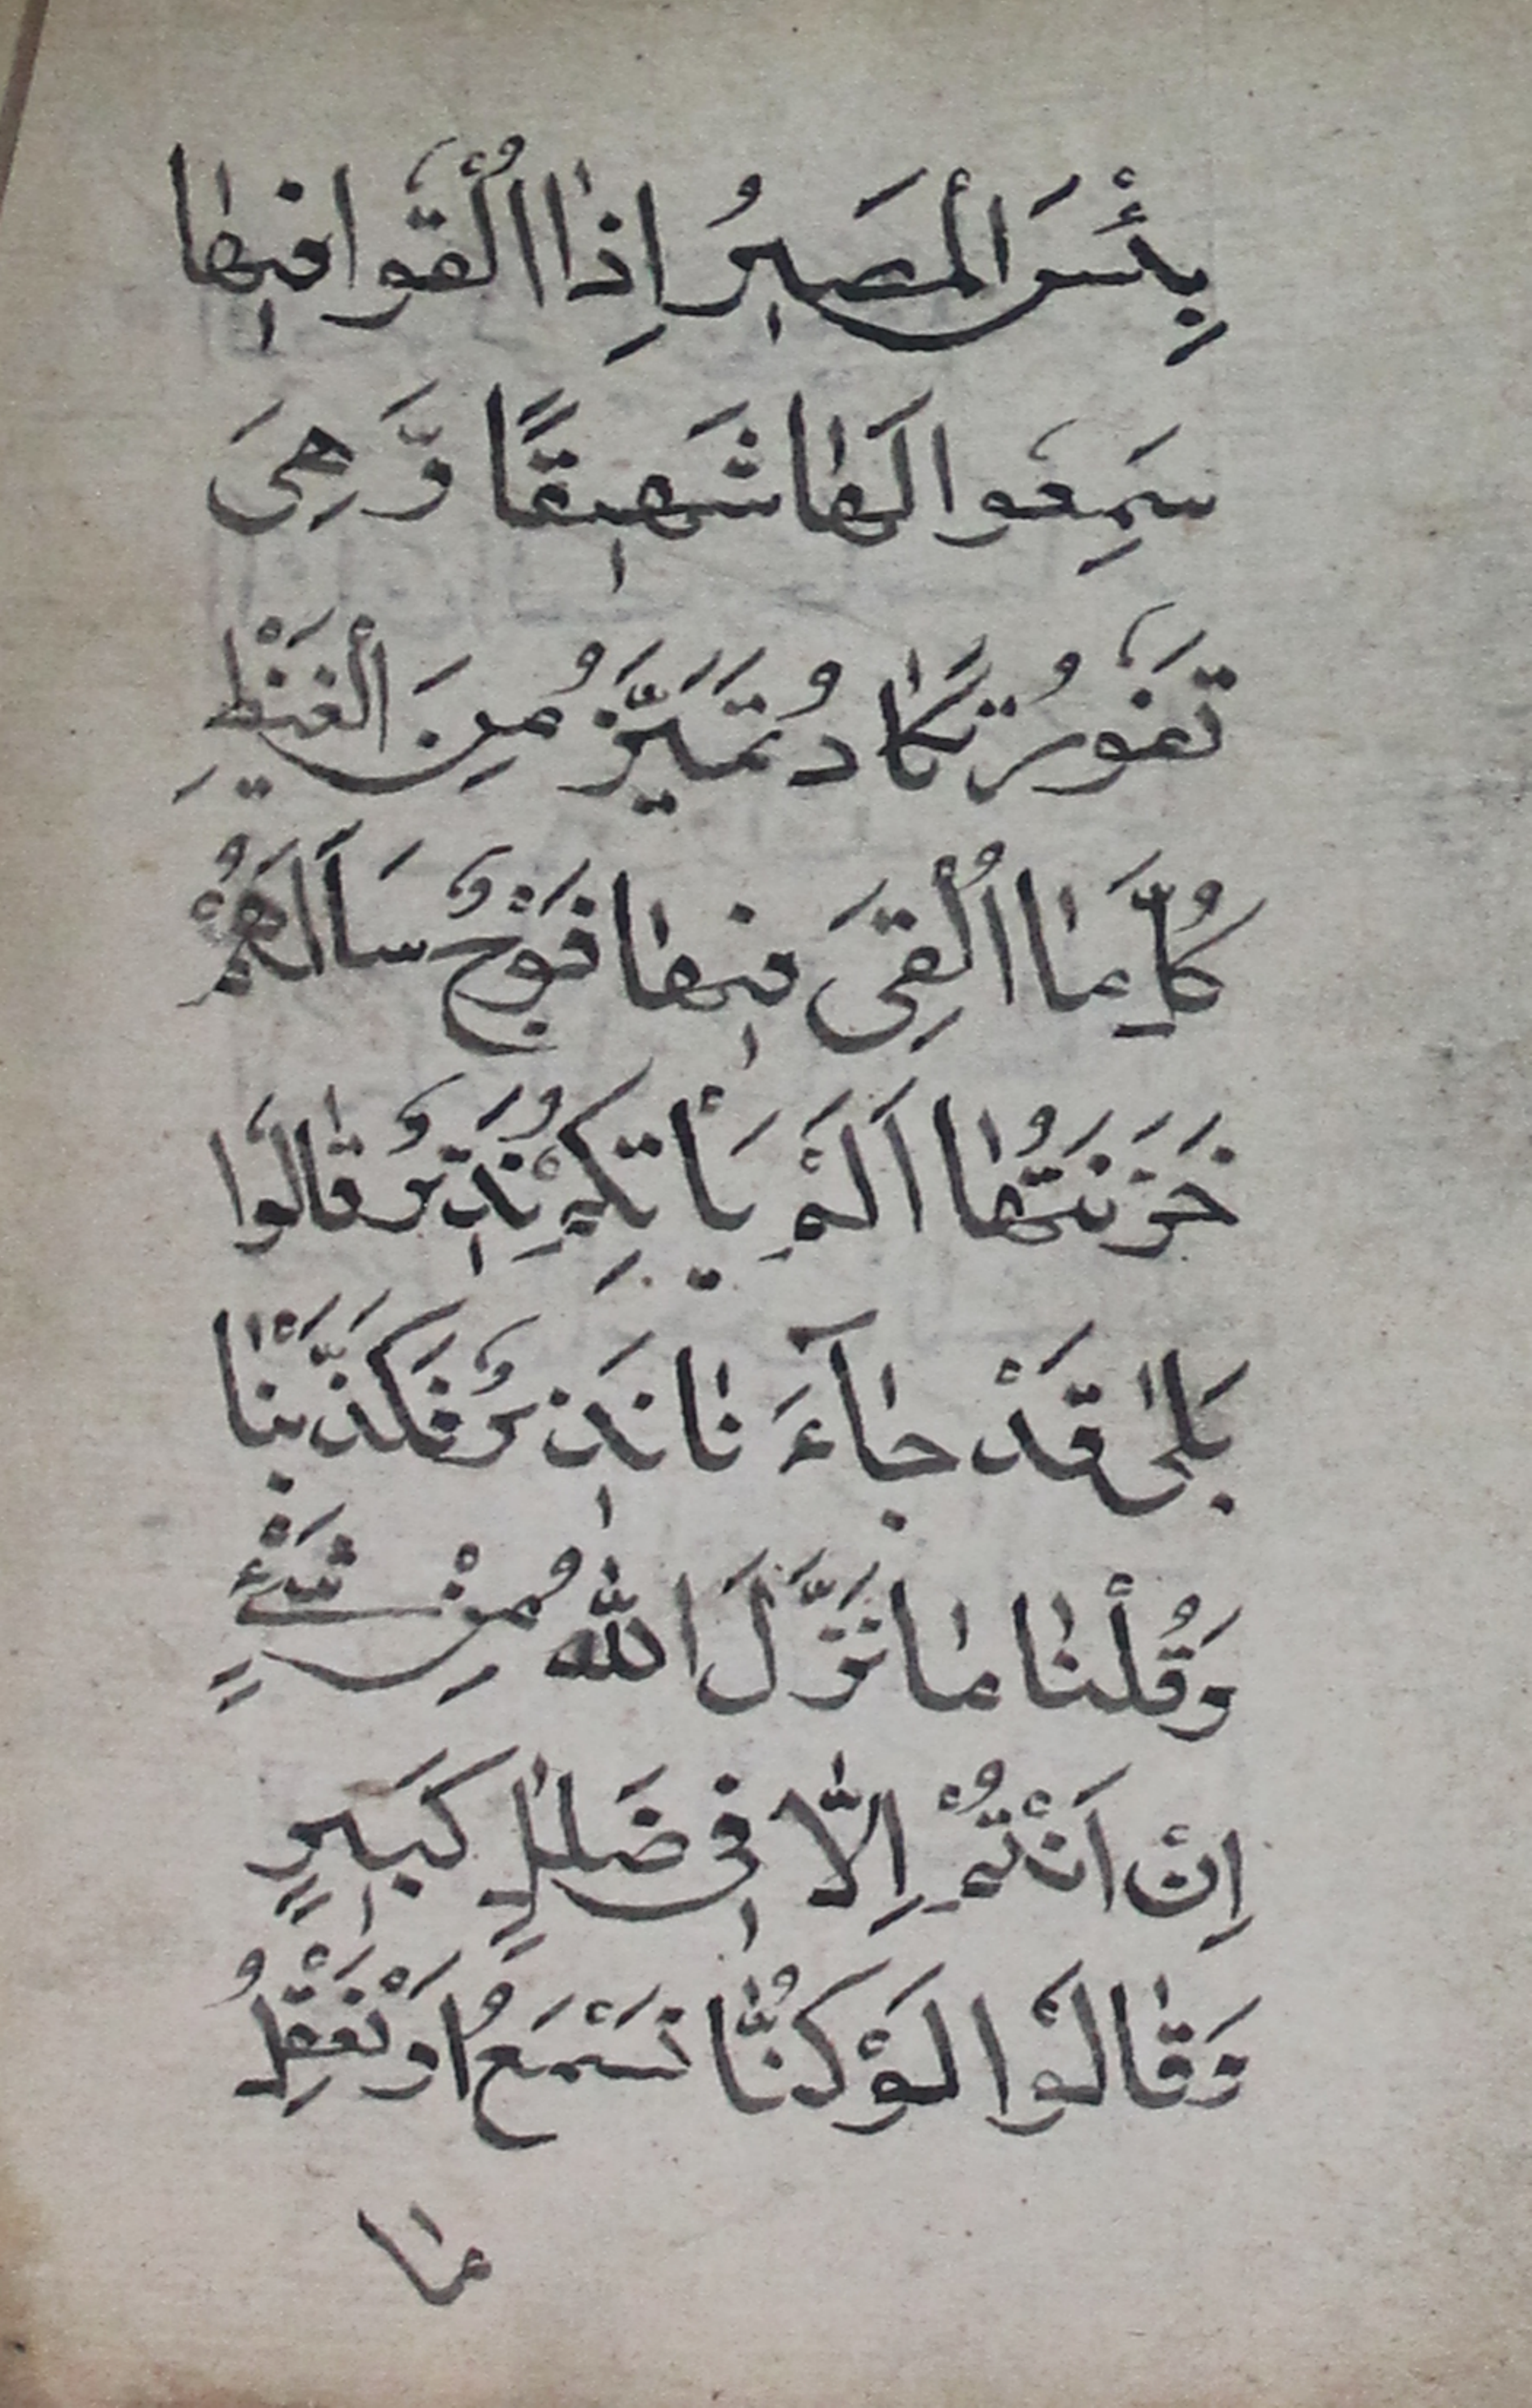 بِئْسَ الْمَصٖيرُ اِذٰا اُلْقُوا فٖيهٰا
سَمِعُوا لَهٰا شَهٖيقًا وَّهِىَ
تَفُورُ تَكٰادُ تَمَيَّزُ مِنَ الْغَيْظِ
كُلَّمٰا اُلْقِىَ فٖيهٰا فَوْجٌ سَاَلَهُمْ
خَزَنَتُهٰا اَلَمْ يَأْتِكُمْ نَذٖيرٌ قٰالُوا
بَلىٰ قَدْ جٰآءَ نٰا نَذٖيرٌ فَكَذَّبْنٰا
وَقُلْنٰا مٰا نَزَّلَ اللّٰهُ مِنْ شَىْءٍ
اِنْ اَنْتُمْ اِلّٰا فٖى ضَلٰلٍ كَبٖيرٍ
وَقٰالُوْا لَوْ كُنّٰا نَسْمَعُ اَوْ نَعْقِلُ
مٰا